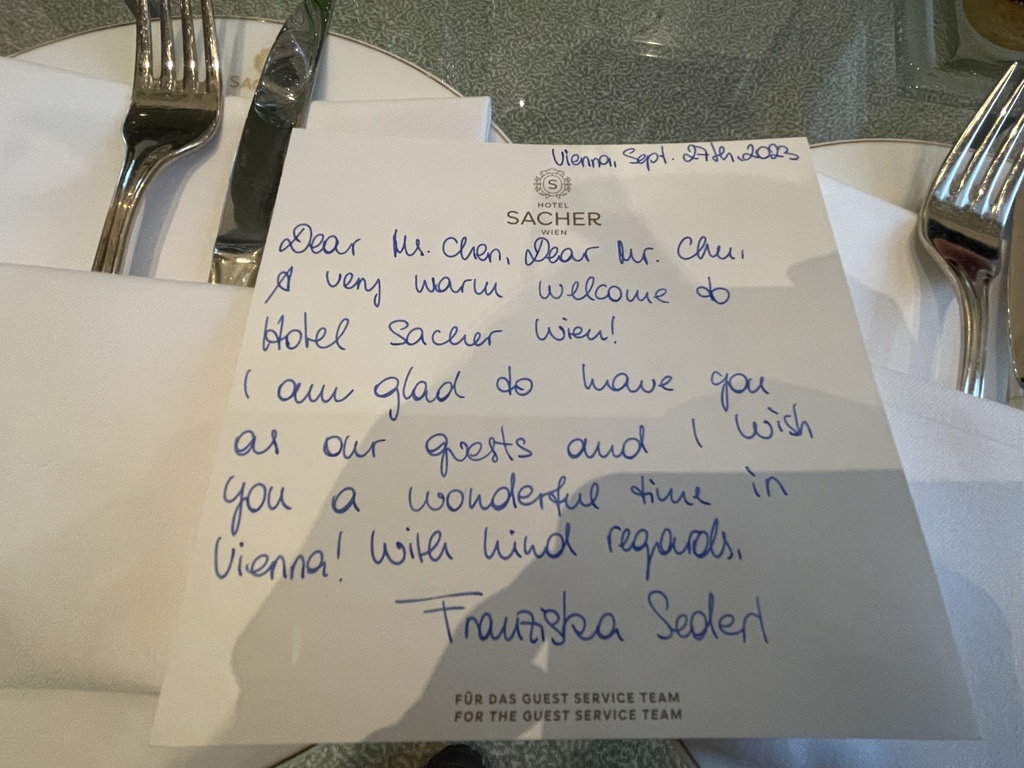 SA
Vienna, Sept. 27th, 2023
S
HOTEL
SACHER
WIEN
Dear Mr. Chen, Dear Mr. Chu,
A very warm welcome to
Hotel Sacher Wien!
I am glad to have you
as our guests and I wish
you a wonderful time in
Vienna! With kind regards,
Franziska Sederl
FÜR DAS GUEST SERVICE TEAM
FOR THE GUEST SERVICE TEAM